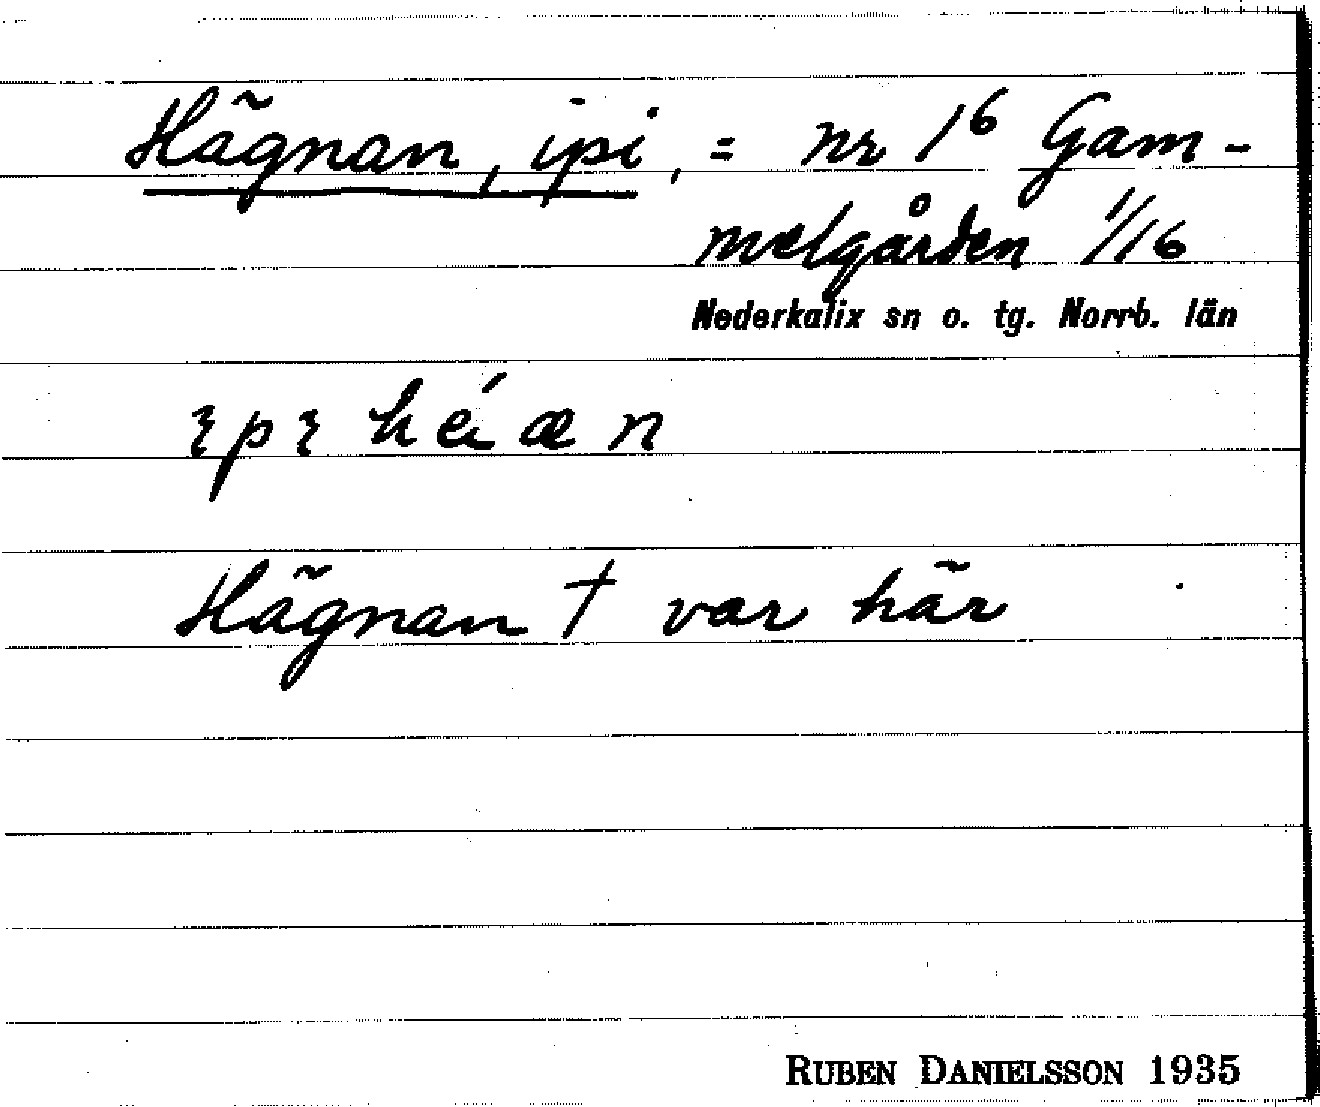 Hägnan, ipi, = nr 1⁶ Gam-
melgården 1/16
Nederkalix sn o. tg. Norrb. län
ꝛpꝛ héæn
Hägnan † var här
RUBEN DANIELSSON 1935